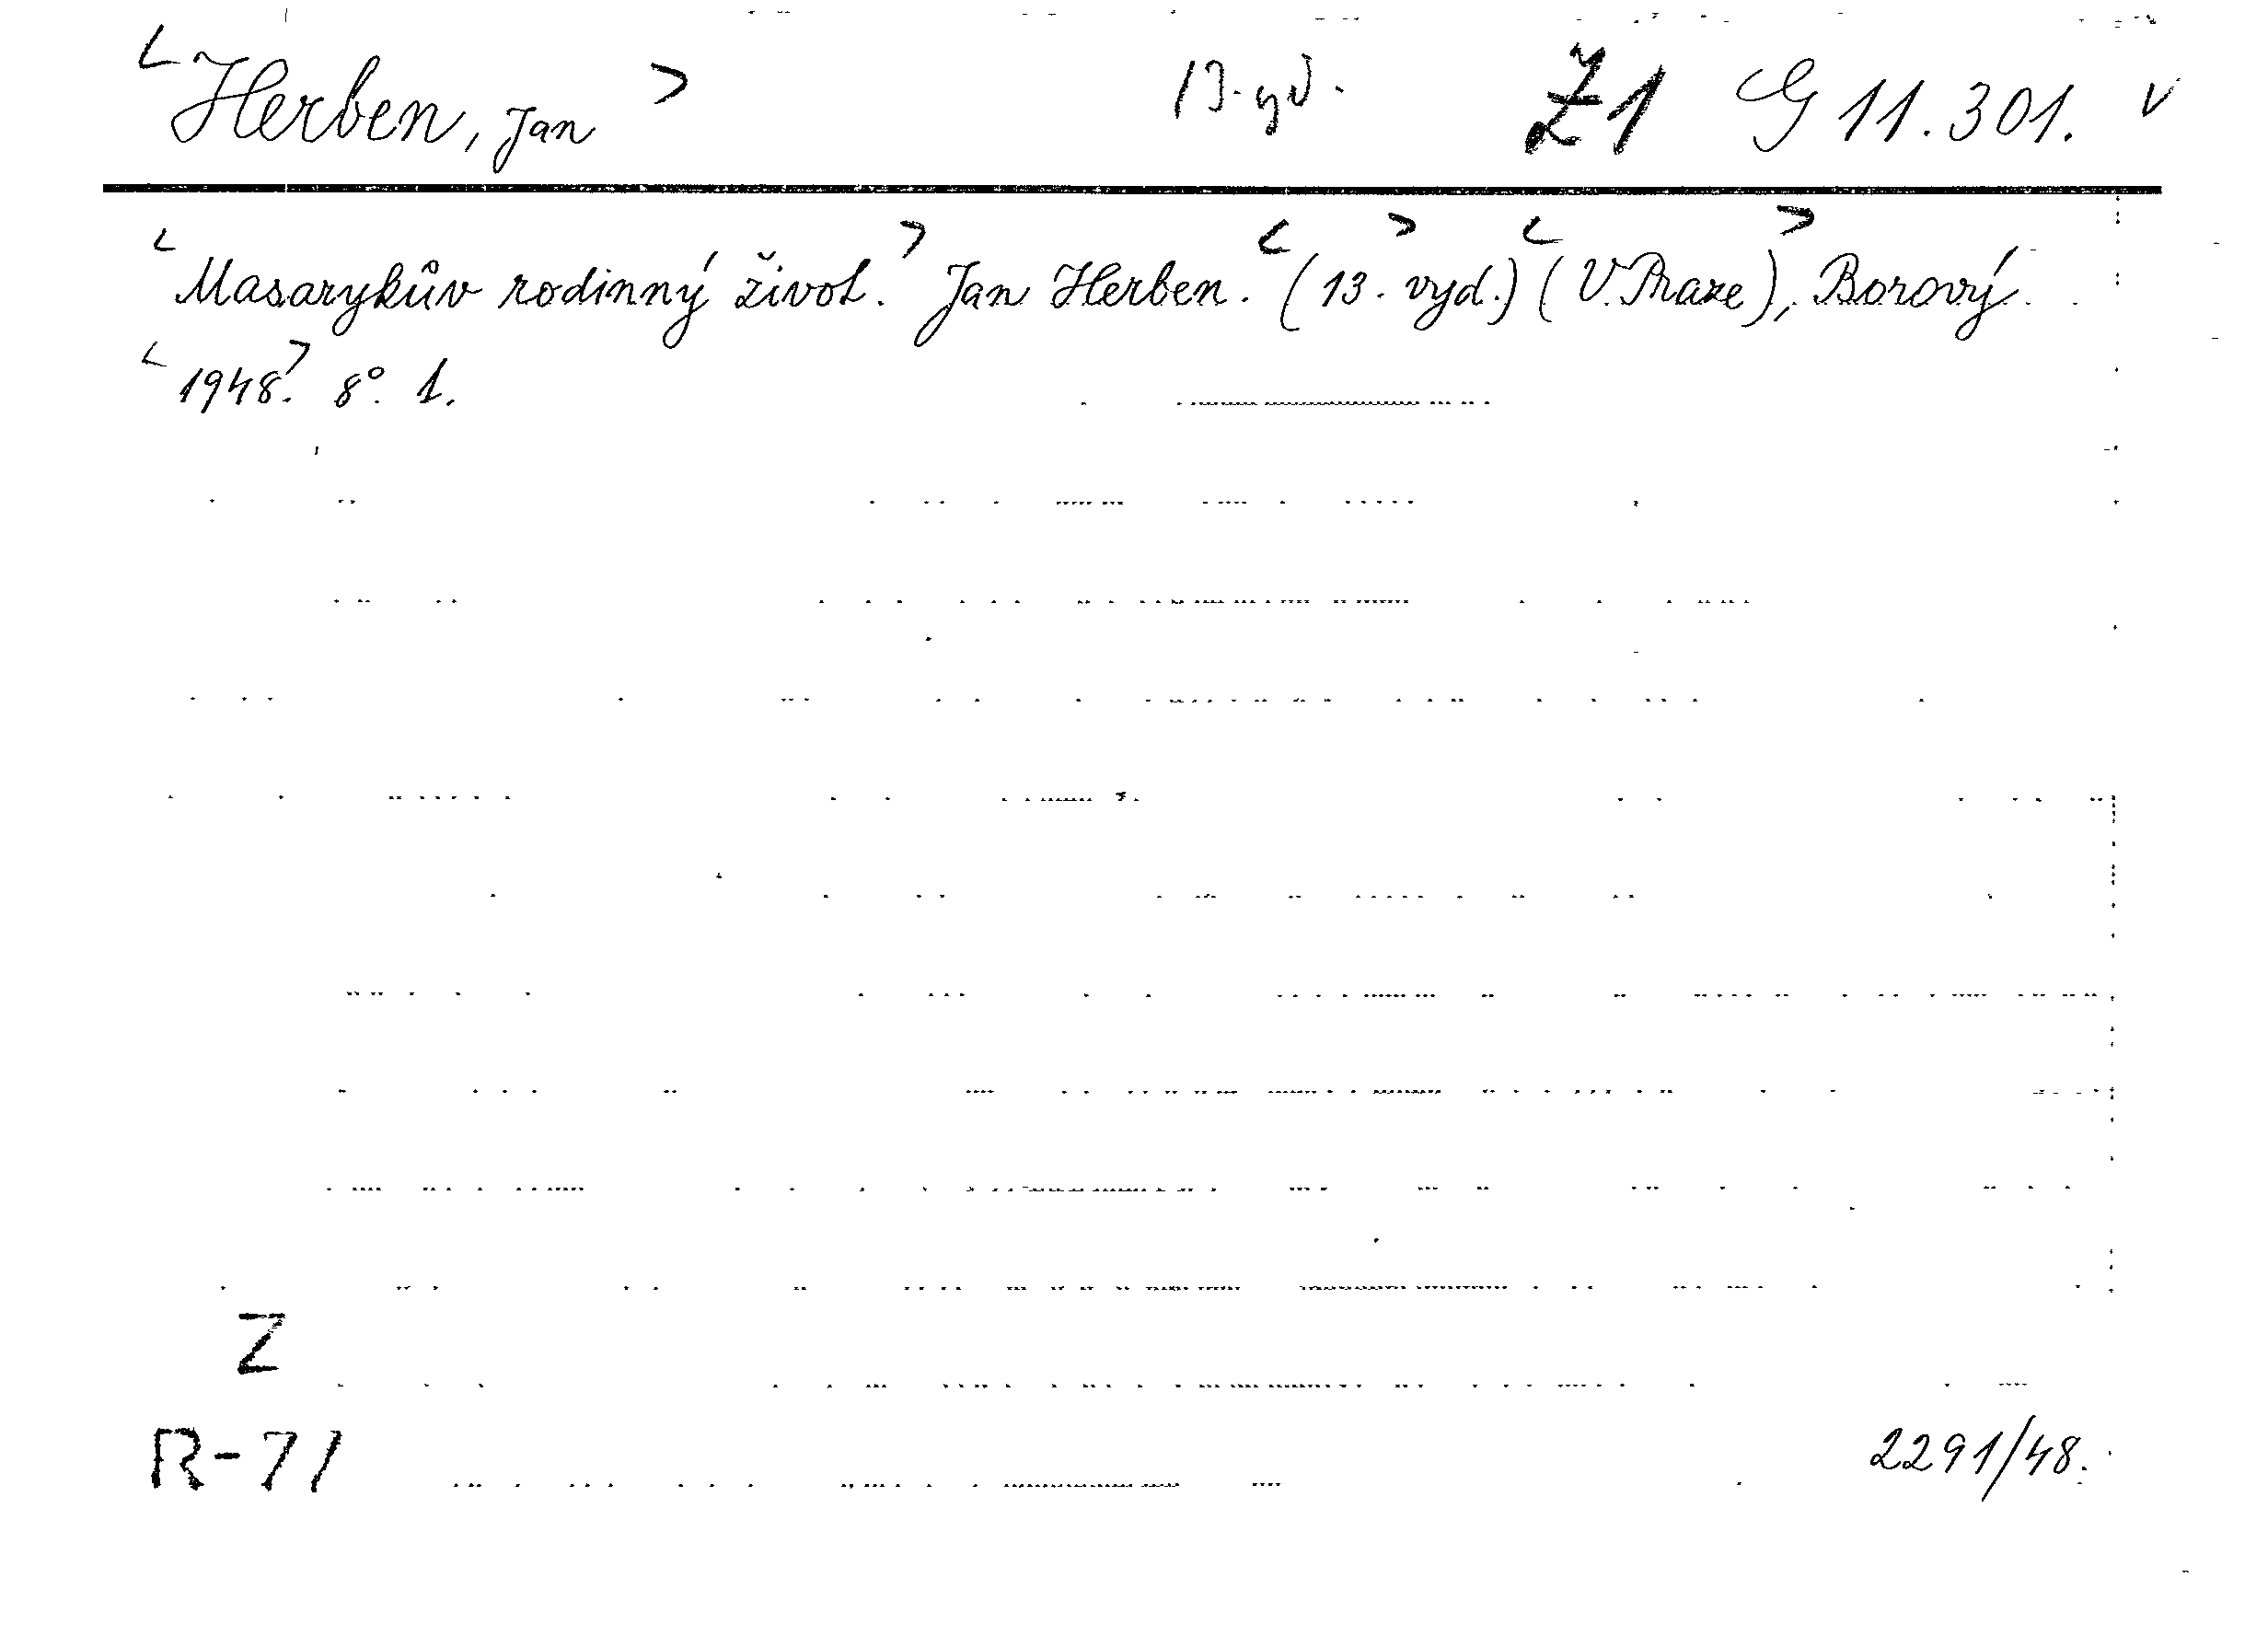 <Herben, Jan> 13. vyd. Z1 G 11.301. v
<Masarykův rodinný život.> Jan Herben. <(13. vyd.)> <(V Praze)>, Borový.
<1948>. 8°. 1.
Z
R-71 2291/48.